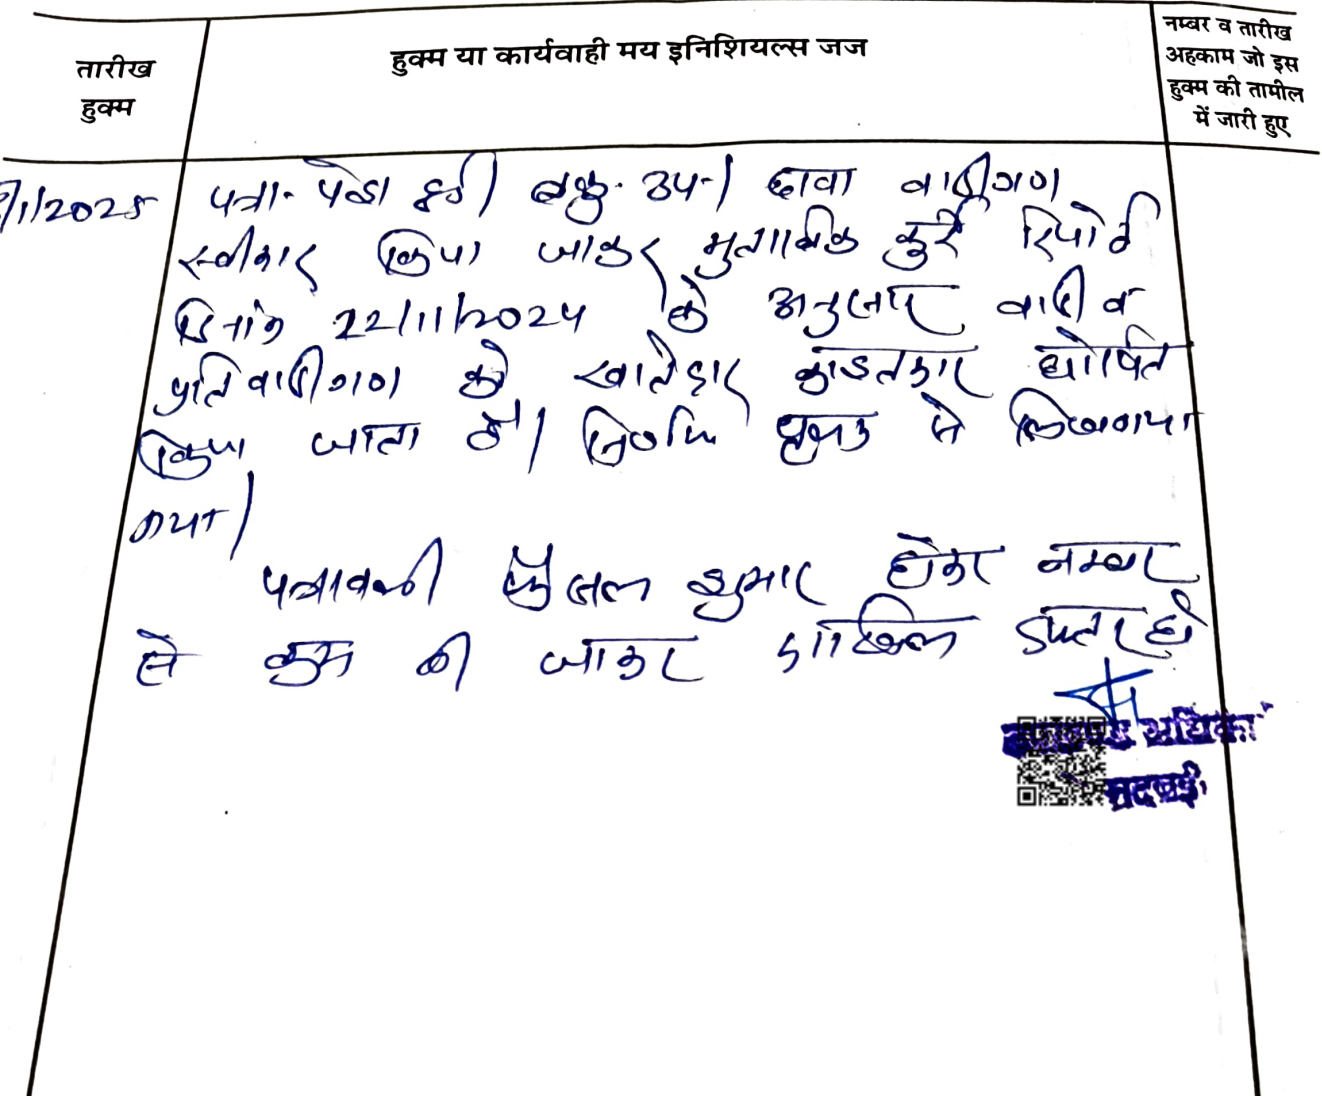 तारीख
हुक्म
हुक्म या कार्यवाही मय इनिशियल्स जज
नम्बर व तारीख
अहकाम जो इस
हुक्म की तामील
में जारी हुए
/1/2025 पत्रा- पेश हुई। वकु. उप-। दावा वादीगण
स्वीकार किया जाकर मुताबिक कुर्रे रिपोर्ट
दिनांक 22/11/2024 के अनुसार वादी व
प्रतिवादीगण को खातेदार काश्तकार घोषित
किया जाता है। निर्णय पृथक से लिखवाया
गया।
पत्रावली फैसल शुमार होकर नम्बर
से कम की जाकर दाखिल दफ्तर हो